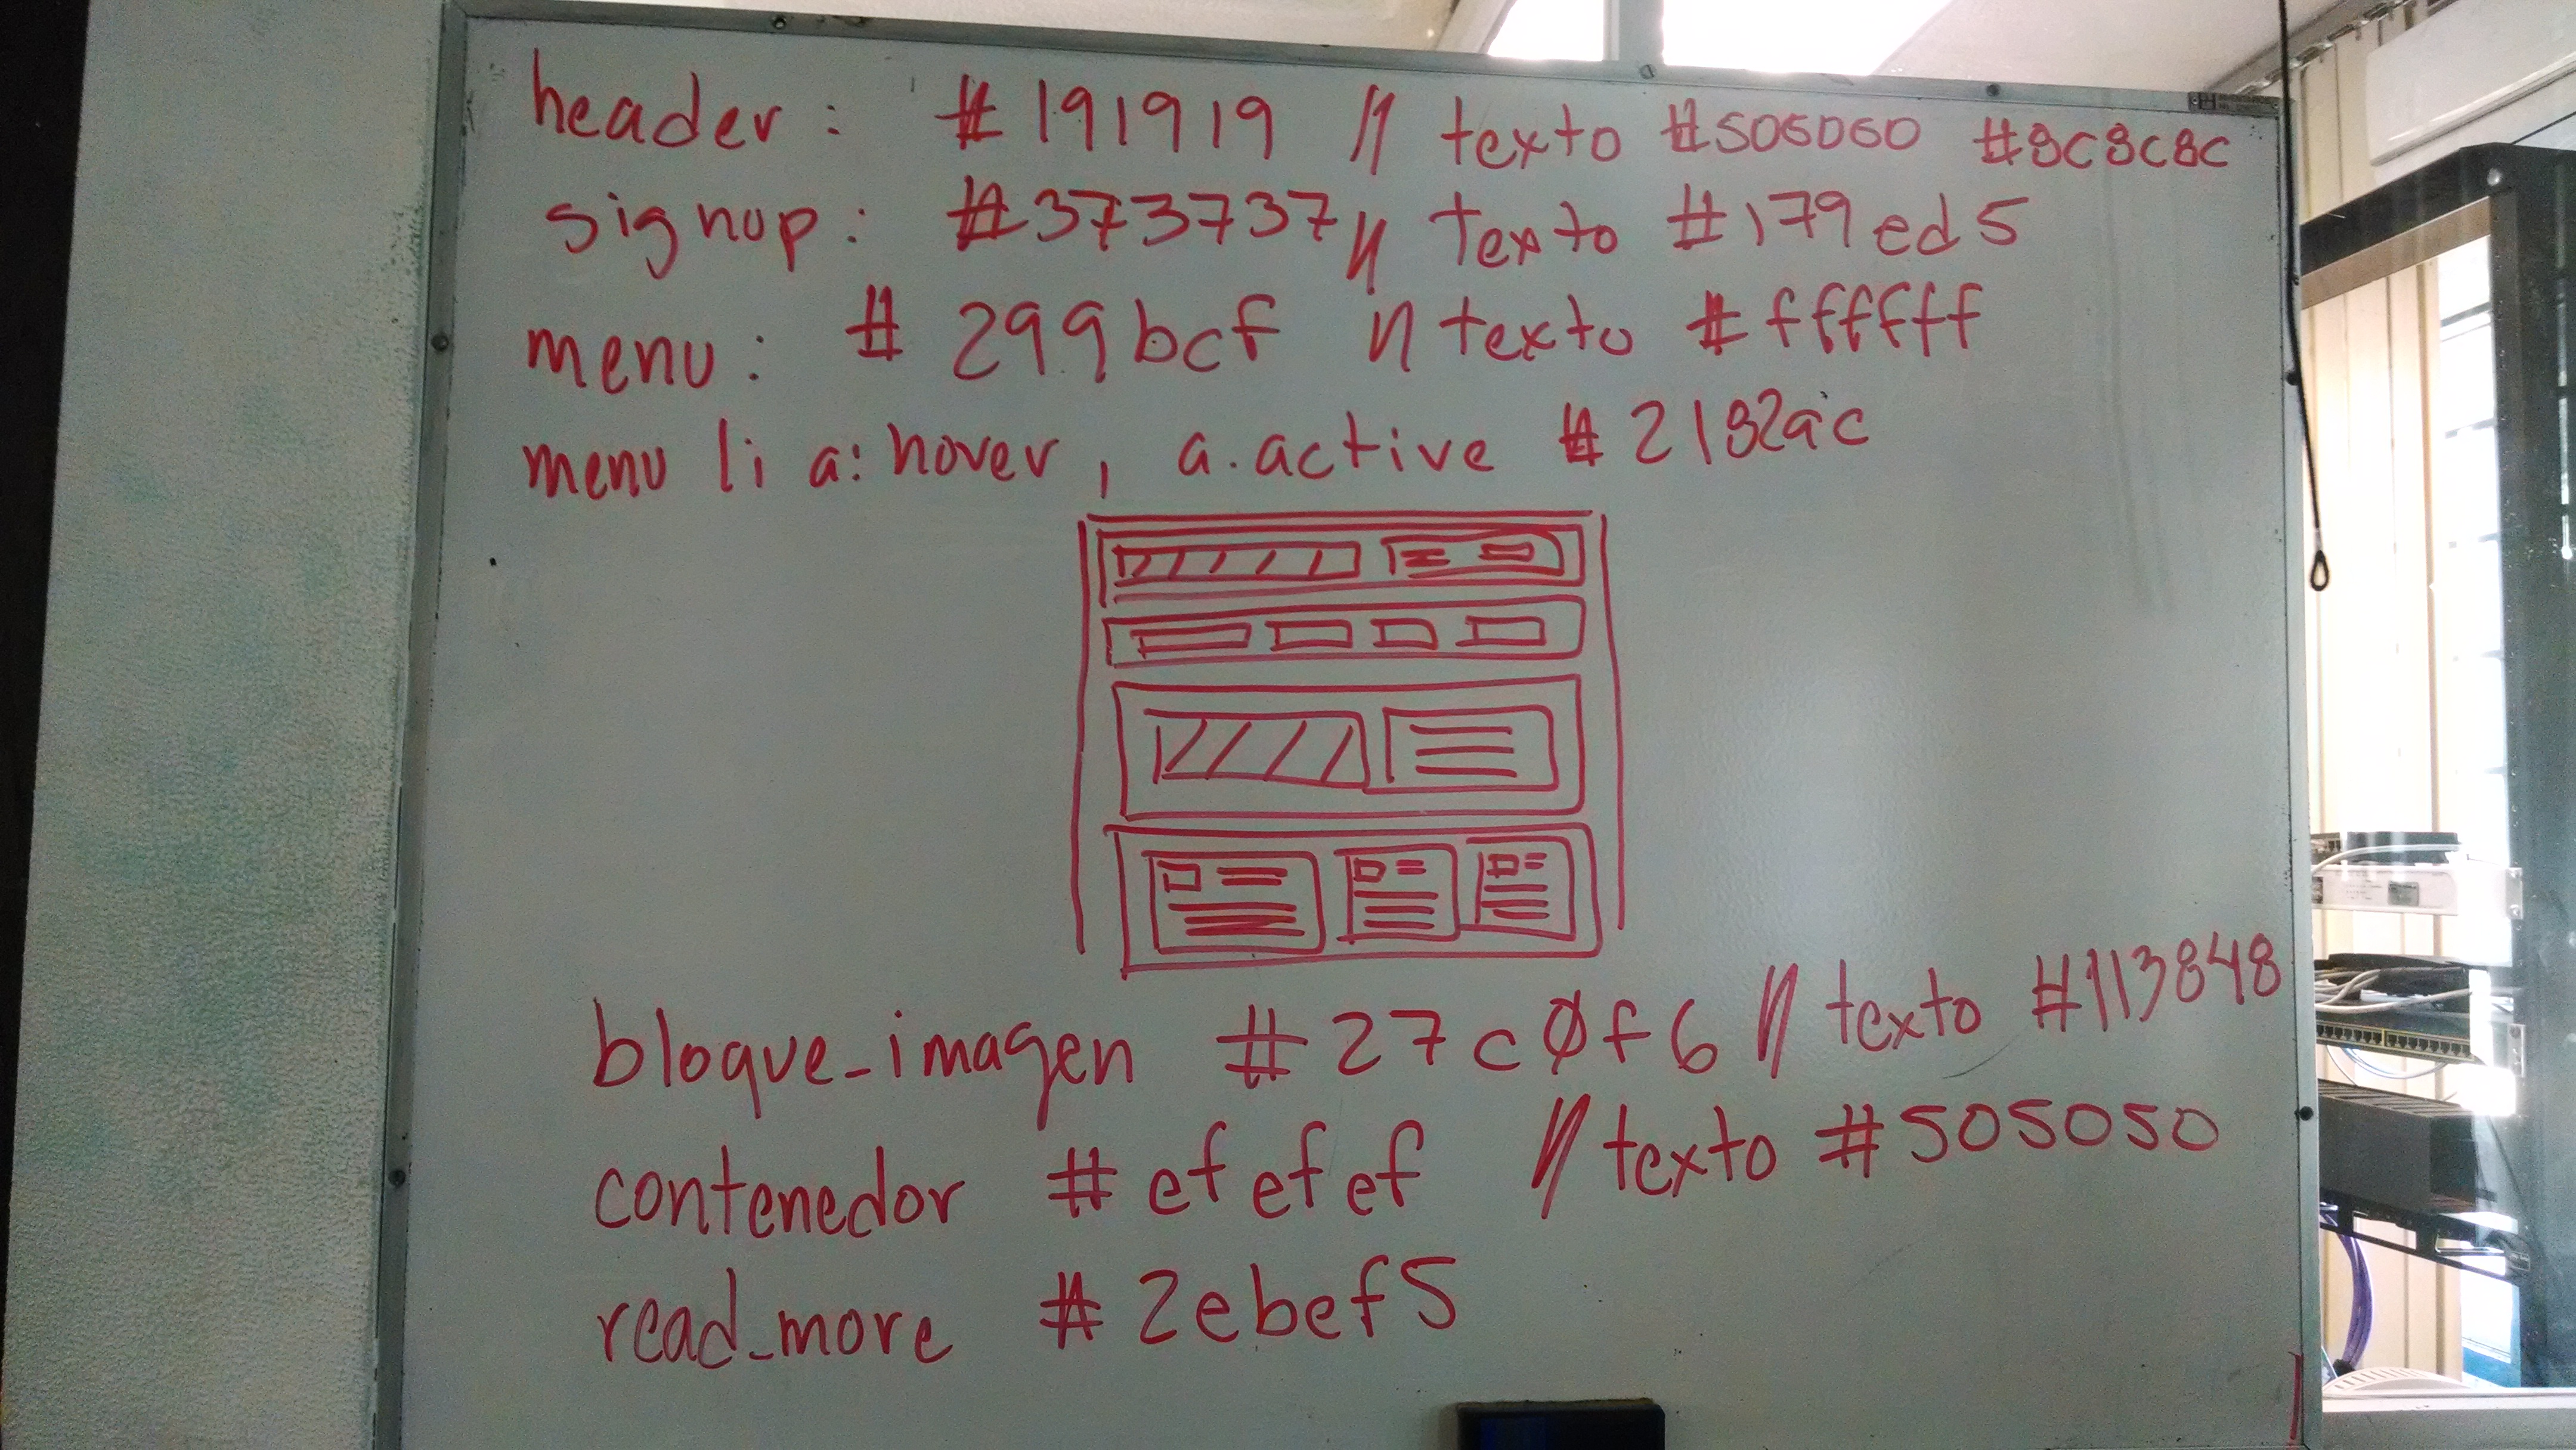 header: #191919 // texto #505050 #8c8c8c
signup: #373737 // texto #179ed5
menu: #299bcf // texto #ffffff
menu li a:hover, a.active #2182ac
bloque_imagen #27c0f6 // texto #113848
contenedor #efefef // texto #505050
read_more #2ebef5